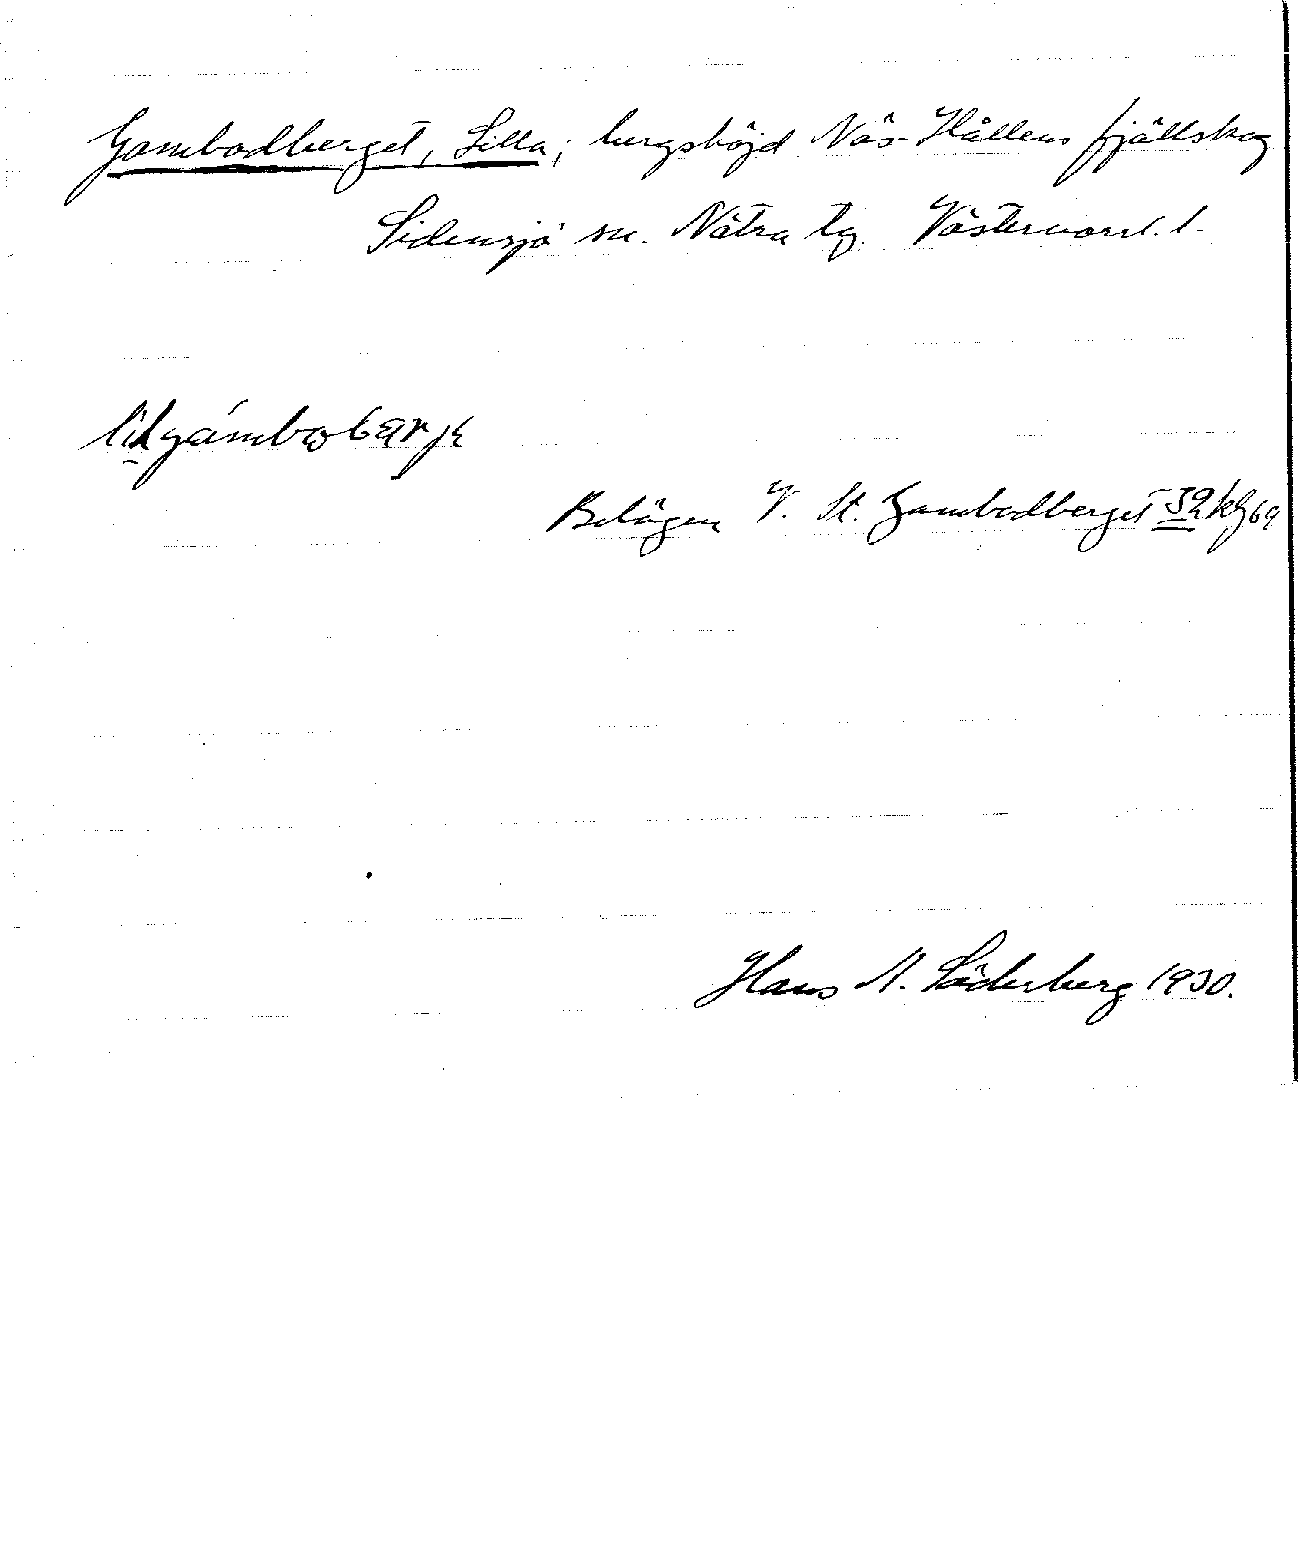 Gambodberget, Lilla; bergshöjd Näs-Hållens fjällskog
Sidensjö sn. Nätra tg. Västernorrl. l.
Belägen V. St. Gambodberget
Hans N. Söderberg 1930.